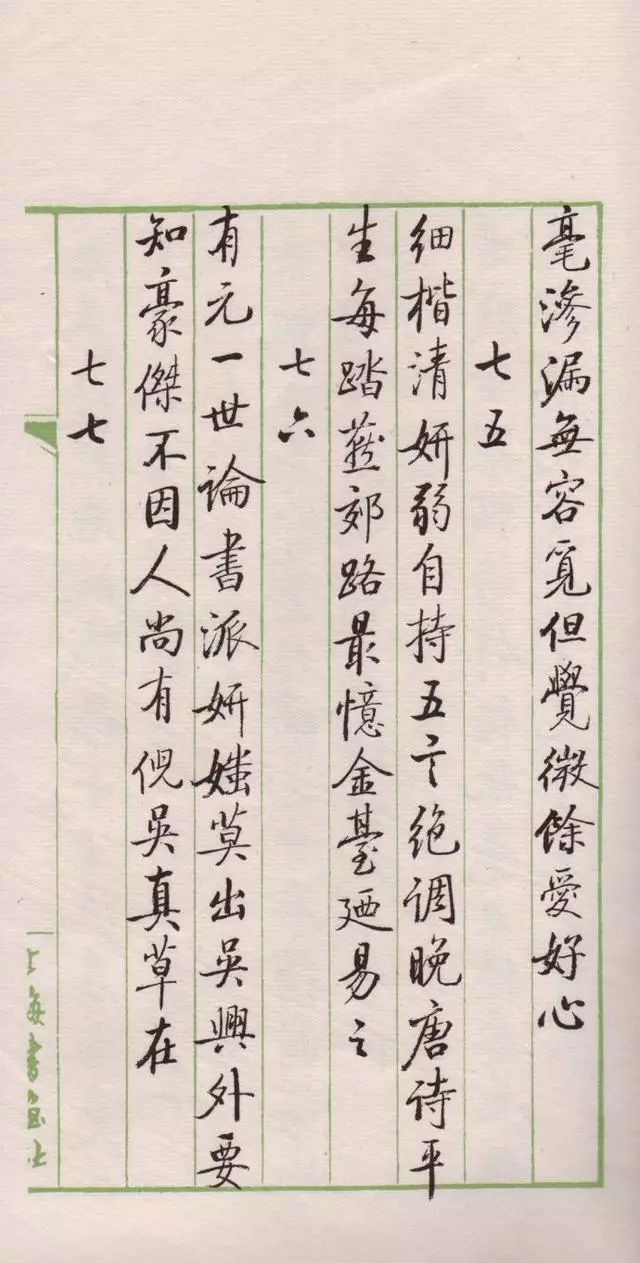 毫滲漏無容覓但覺微餘愛好心
七五
細楷清妍弱自持五言絕調晚唐诗平
生每踏燕郊路最憶金臺廼易之
七六
有元一世論書派妍媸莫出吳興外要
知豪傑不因人尚有倪吳真草在
七七
上海書畫社